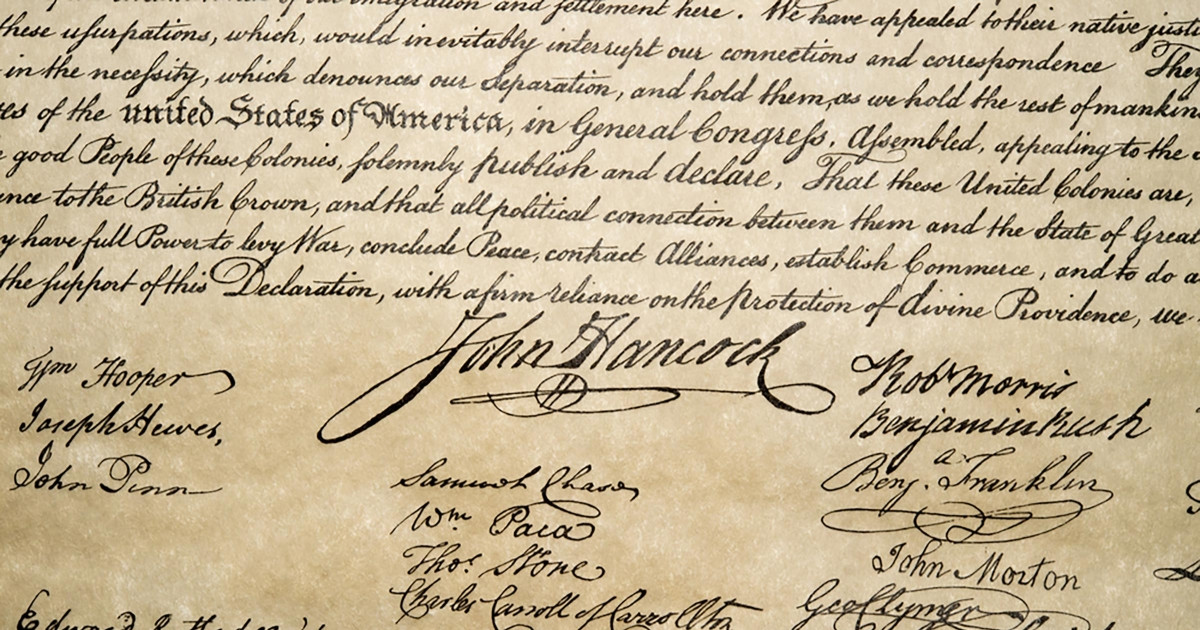 emigration and settlement here. We have appealed to their native justi
these usurpations, which, would inevitably interrupt our connections and correspondence They
in the necessity, which denounces our Separation, and hold them, as we hold the rest of mankin
of the united States of America, in General Congress, Assembled, appealing to the
good People of these Colonies, solemnly publish and declare, That these United Colonies are,
to the British Crown, and that all political connection between them and the State of Great
y have full Power to levy War, conclude Peace, contract Alliances, establish Commerce, and to do a
the support of this Declaration, with a firm reliance on the Protection of divine Providence, we
John Hancock
Wm Hooper
Joseph Hewes,
John Penn
Samuel Chase
Wm Paca
Thos. Stone
Charles Carroll of Carrollton
Robt Morris
Benjamin Rush
Benj. Franklin
John Morton
Geo Clymer